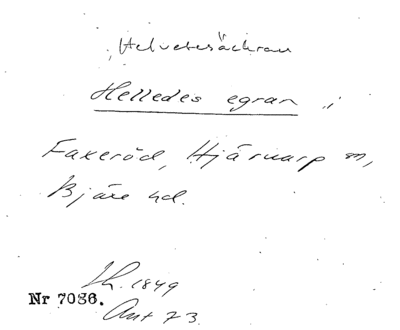 Helvetesäckran
Helledes egran i
Faxeröd, Hjärnarp sn,
Bjäre hd.
Lh. 1849
Nr 7086.
Ant 73